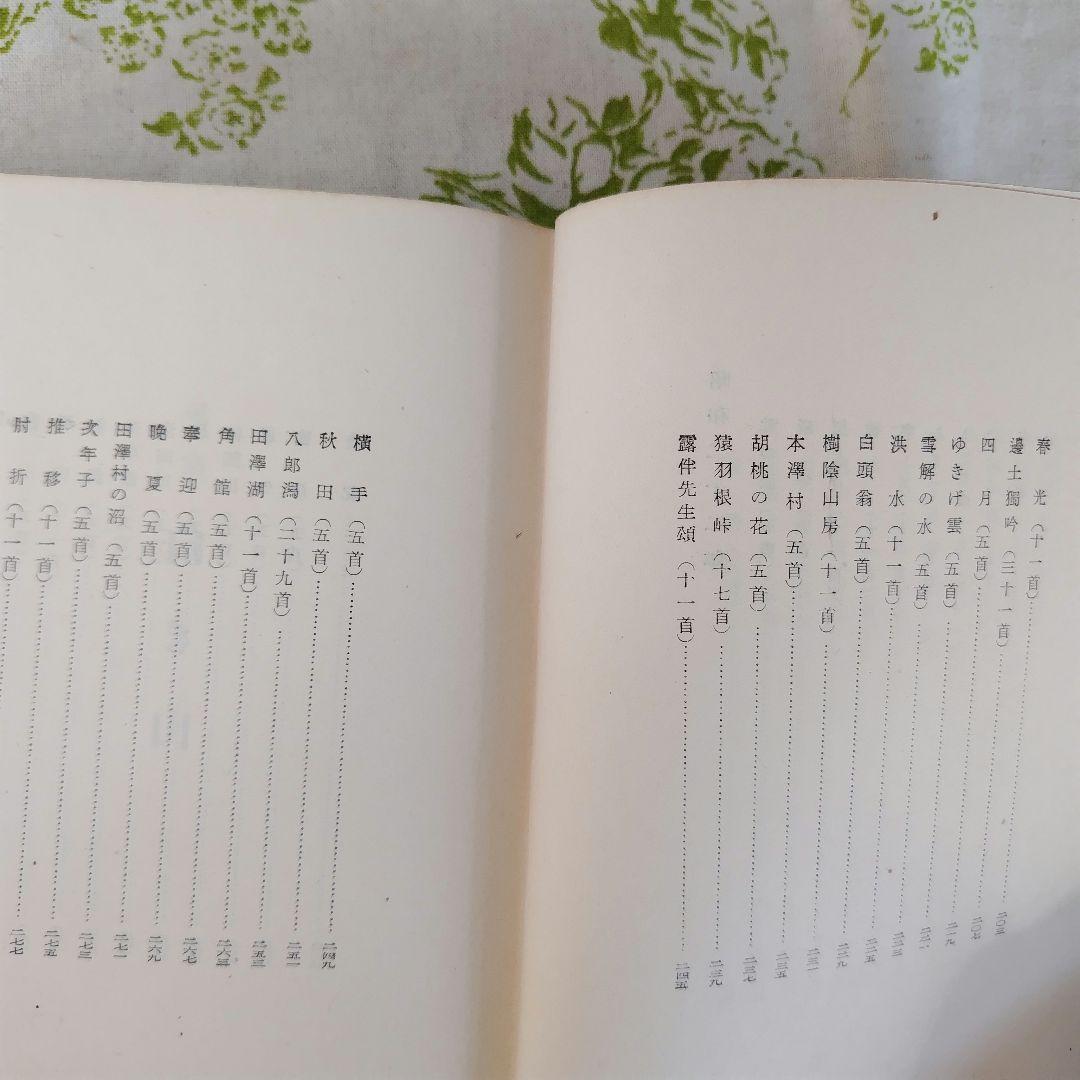 春光(十一首)……二〇三
邊土獨吟(三十一首)……二〇七
四月(五首)……二一九
ゆきげ雲(五首)……二二一
雪解の水(五首)……二二三
洪水(十一首)……二二五
白頭翁(五首)……二二九
樹陰山房(十一首)……二三一
本澤村(五首)……二三五
胡桃の花(五首)……二三七
猿羽根峠(十七首)……二三九
露伴先生頌(十一首)……二四五
横手(五首)……二四九
秋田(五首)……二五一
八郎潟(二十九首)……二五三
田澤湖(十一首)……二六三
角館(五首)……二六七
奉迎(五首)……二六九
晩夏(五首)……二七一
田澤村の沼(五首)……二七三
次年子(五首)……二七五
推移(十一首)……二七七
肘折(十一首)……